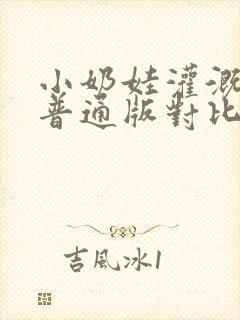 小奶娃灌溉
普通版對比
吉風冰1